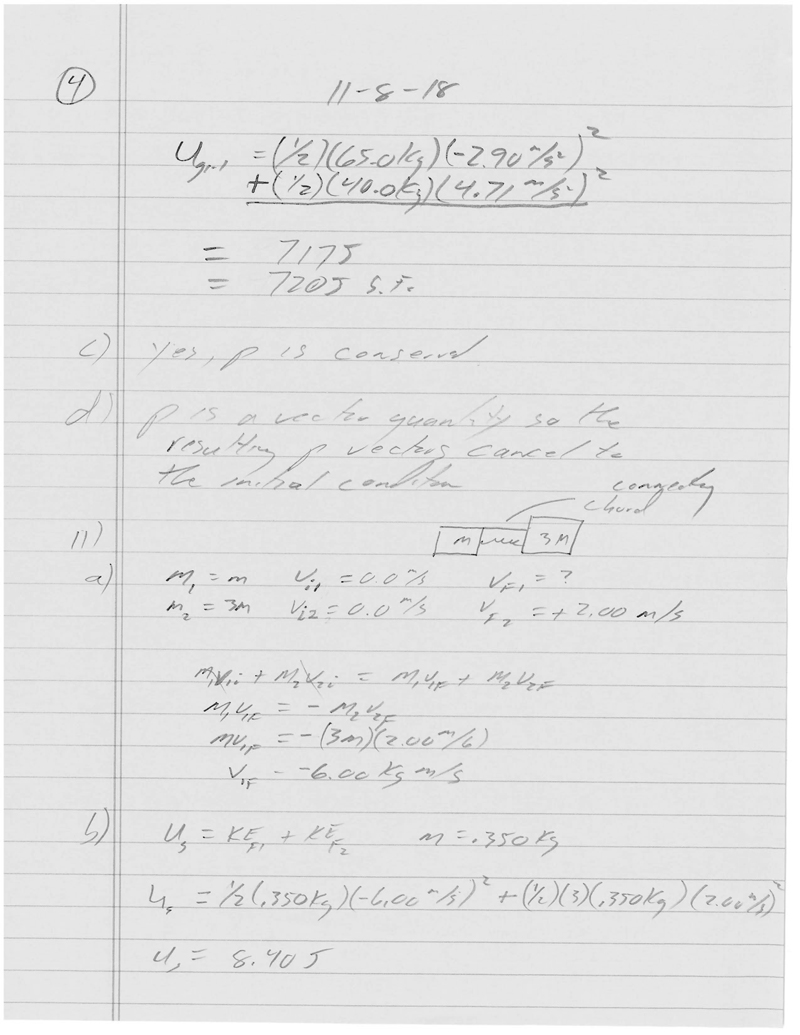 ④ 11-8-18
Ugirl = (½)(65.0kg)(-2.90 m/s²)²
+(½)(40.0kg)(4.71 m/s²)²
= 717J
= 720J S.F.
c) yes, p is conserved
d) p is a vector quantity so the
resulting p vectors cancel to
the initial condition
connecting
chord
11) m 3M
a) m₁ = m Vi1 = 0.0 m/s VF1 = ?
m₂ = 3M Vi2 = 0.0 m/s VF2 = +2.00 m/s
m₁V1i + M₂V2i = M₁V1F + M₂V2F
M₁V1F = - M₂V2F
MV1F = -(3M)(2.00 m/s)
V1F - -6.00 Kg m/s
b) Us = KEF1 + KEF2 m = .350 Kg
Us = ½(.350Kg)(-6.00 m/s)² + (½)(3)(.350Kg)(2.00 m/s)²
Us = 8.40 J